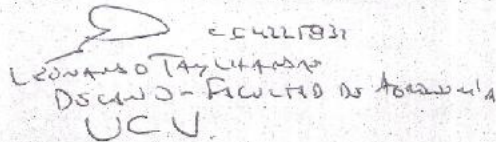 LEONARDO TAYLHARDAT
DECANO - FACULTAD DE AGRONOMÍA
UCV